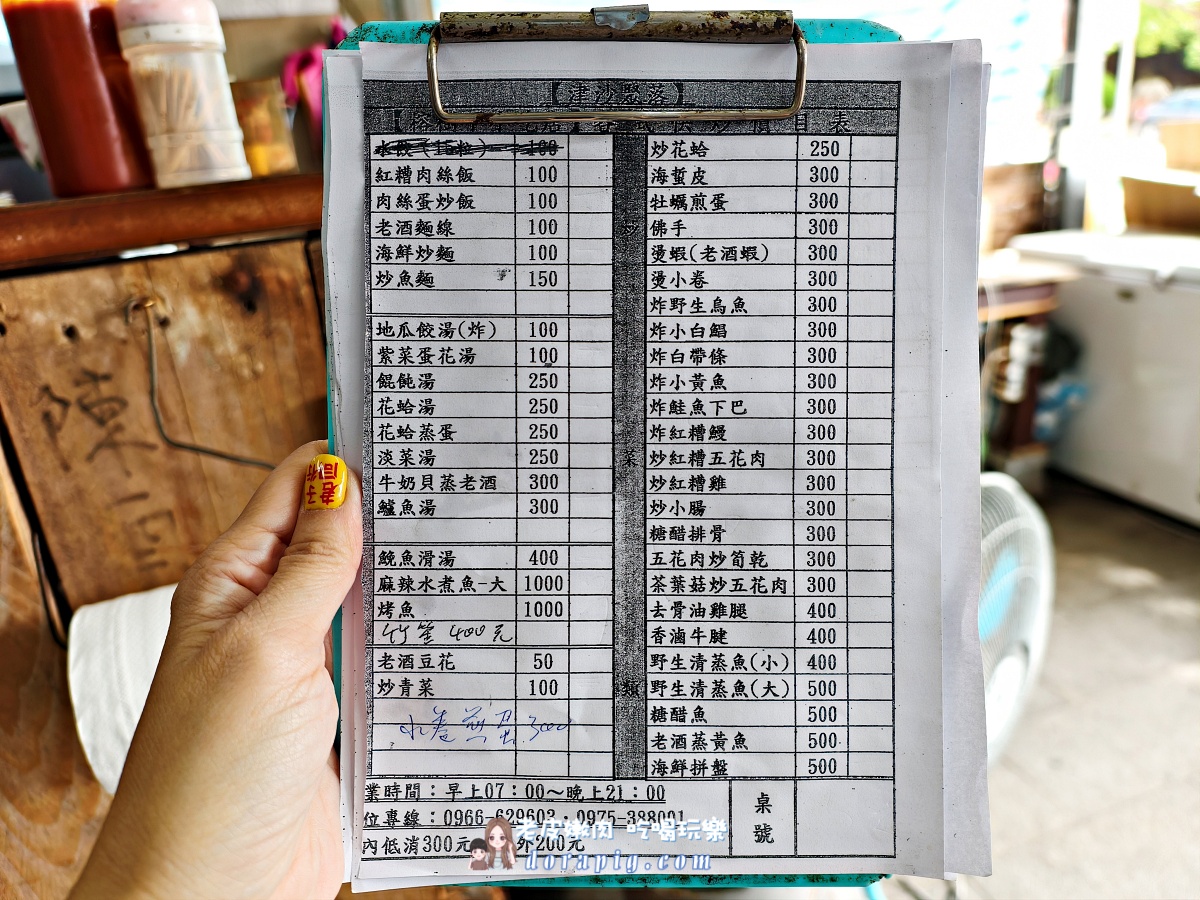 【津沙聚落】
價目表
水餃(15粒) 100
紅糟肉絲飯 100
肉絲蛋炒飯 100
老酒麵線 100
海鮮炒麵 100
炒魚麵 150
地瓜餃湯(炸) 100
紫菜蛋花湯 100
餛飩湯 250
花蛤湯 250
花蛤蒸蛋 250
淡菜湯 250
牛奶貝蒸老酒 300
鱸魚湯 300
鮸魚滑湯 400
麻辣水煮魚-大 1000
烤魚 1000
竹筌 400元
老酒豆花 50
炒青菜 100
小卷蒸蛋 300
炒
菜
類
炒花蛤 250
海蜇皮 300
牡蠣煎蛋 300
佛手 300
燙蝦(老酒蝦) 300
燙小卷 300
炸野生烏魚 300
炸小白鯧 300
炸白帶條 300
炸小黃魚 300
炸鮭魚下巴 300
炸紅糟鰻 300
炒紅糟五花肉 300
炒紅糟雞 300
炒小腸 300
糖醋排骨 300
五花肉炒筍乾 300
茶葉菇炒五花肉 300
去骨油雞腿 400
香滷牛腱 400
野生清蒸魚(小) 400
野生清蒸魚(大) 500
糖醋魚 500
老酒蒸黃魚 500
海鮮拼盤 500
業時間：早上07：00～晚上21：00
位專線：0966-629603，0975-388001
內低消300元 外200元
桌
號
老皮嫩肉 吃喝玩樂
dorapig.com
陳
君子